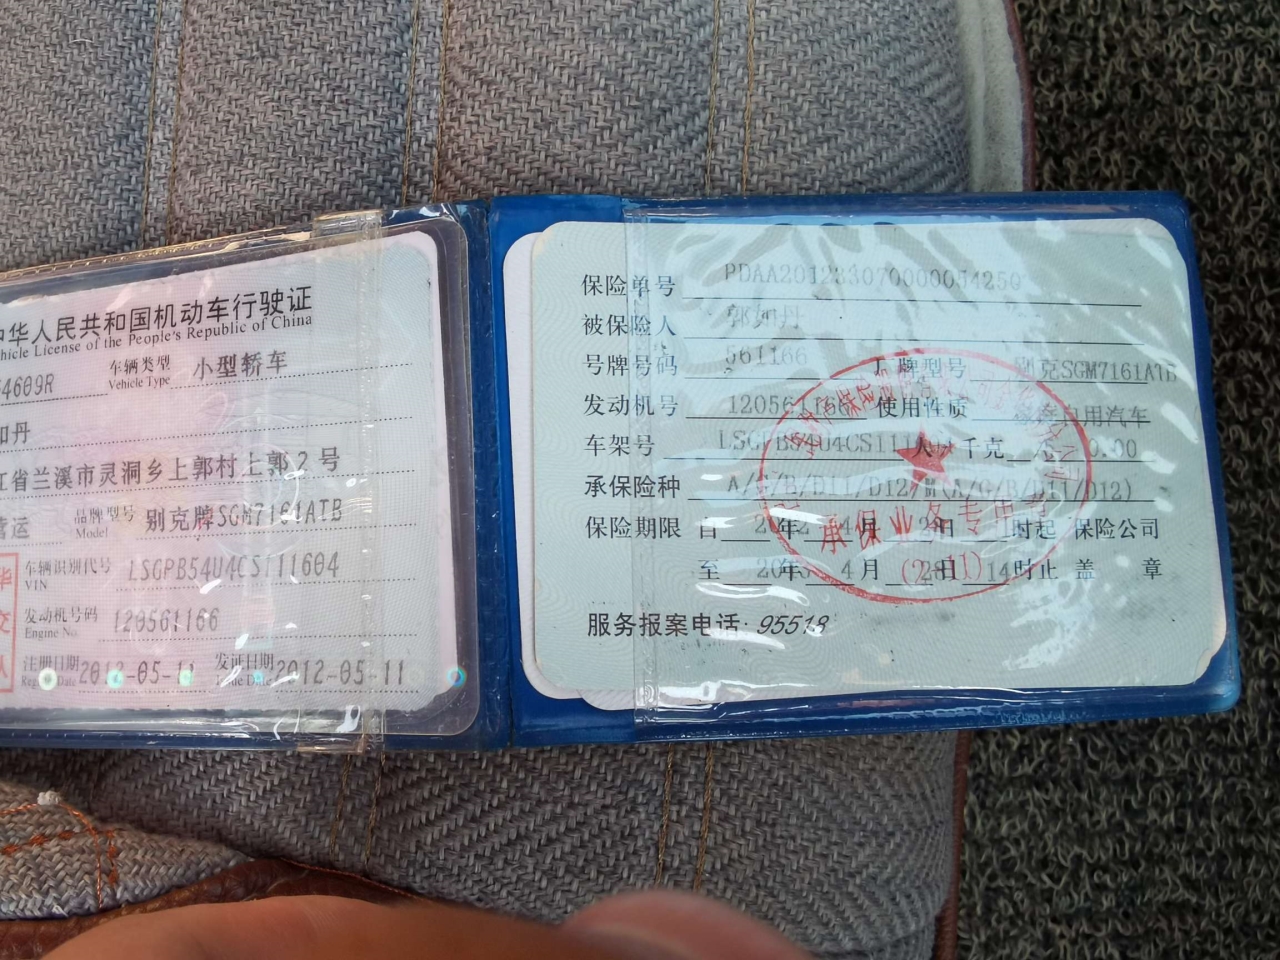 中华人民共和国机动车行驶证
Vehicle License of the People's Republic of China
4609R 车辆类型 Vehicle Type 小型轿车
如丹
江省兰溪市灵洞乡上郭村上郭2号
营运 品牌型号 Model 别克牌SGM7161ATB
车辆识别代号 VIN LSGPB54U4CS111604
发动机号码 Engine No. 120561166
注册日期 Register Date 2012-05-11 发证日期 Issue Date 2012-05-11
保险单号 PDAA20123307000005425
被保险人 郭如丹
号牌号码 561166 厂牌型号 别克SGM7161ATB
发动机号 120561166 使用性质 家庭自用汽车
车架号 LSGPB54U4CS111 人 千克 0.00
承保险种 A/G/B/D11/D12/M(A/G/B/D11/D12)
保险期限 自 年 4月 日 时起 保险公司
至 20 年 4月 日 14时止 盖 章
承保业务专用
服务报案电话: 95518